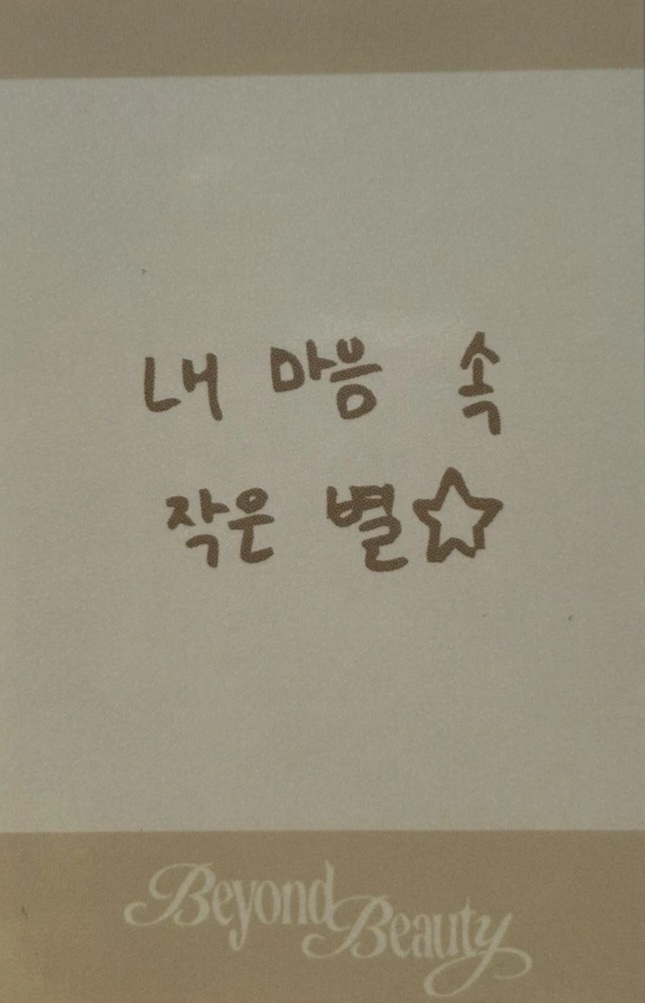 내 마음 속
작은 별☆
Beyond Beauty